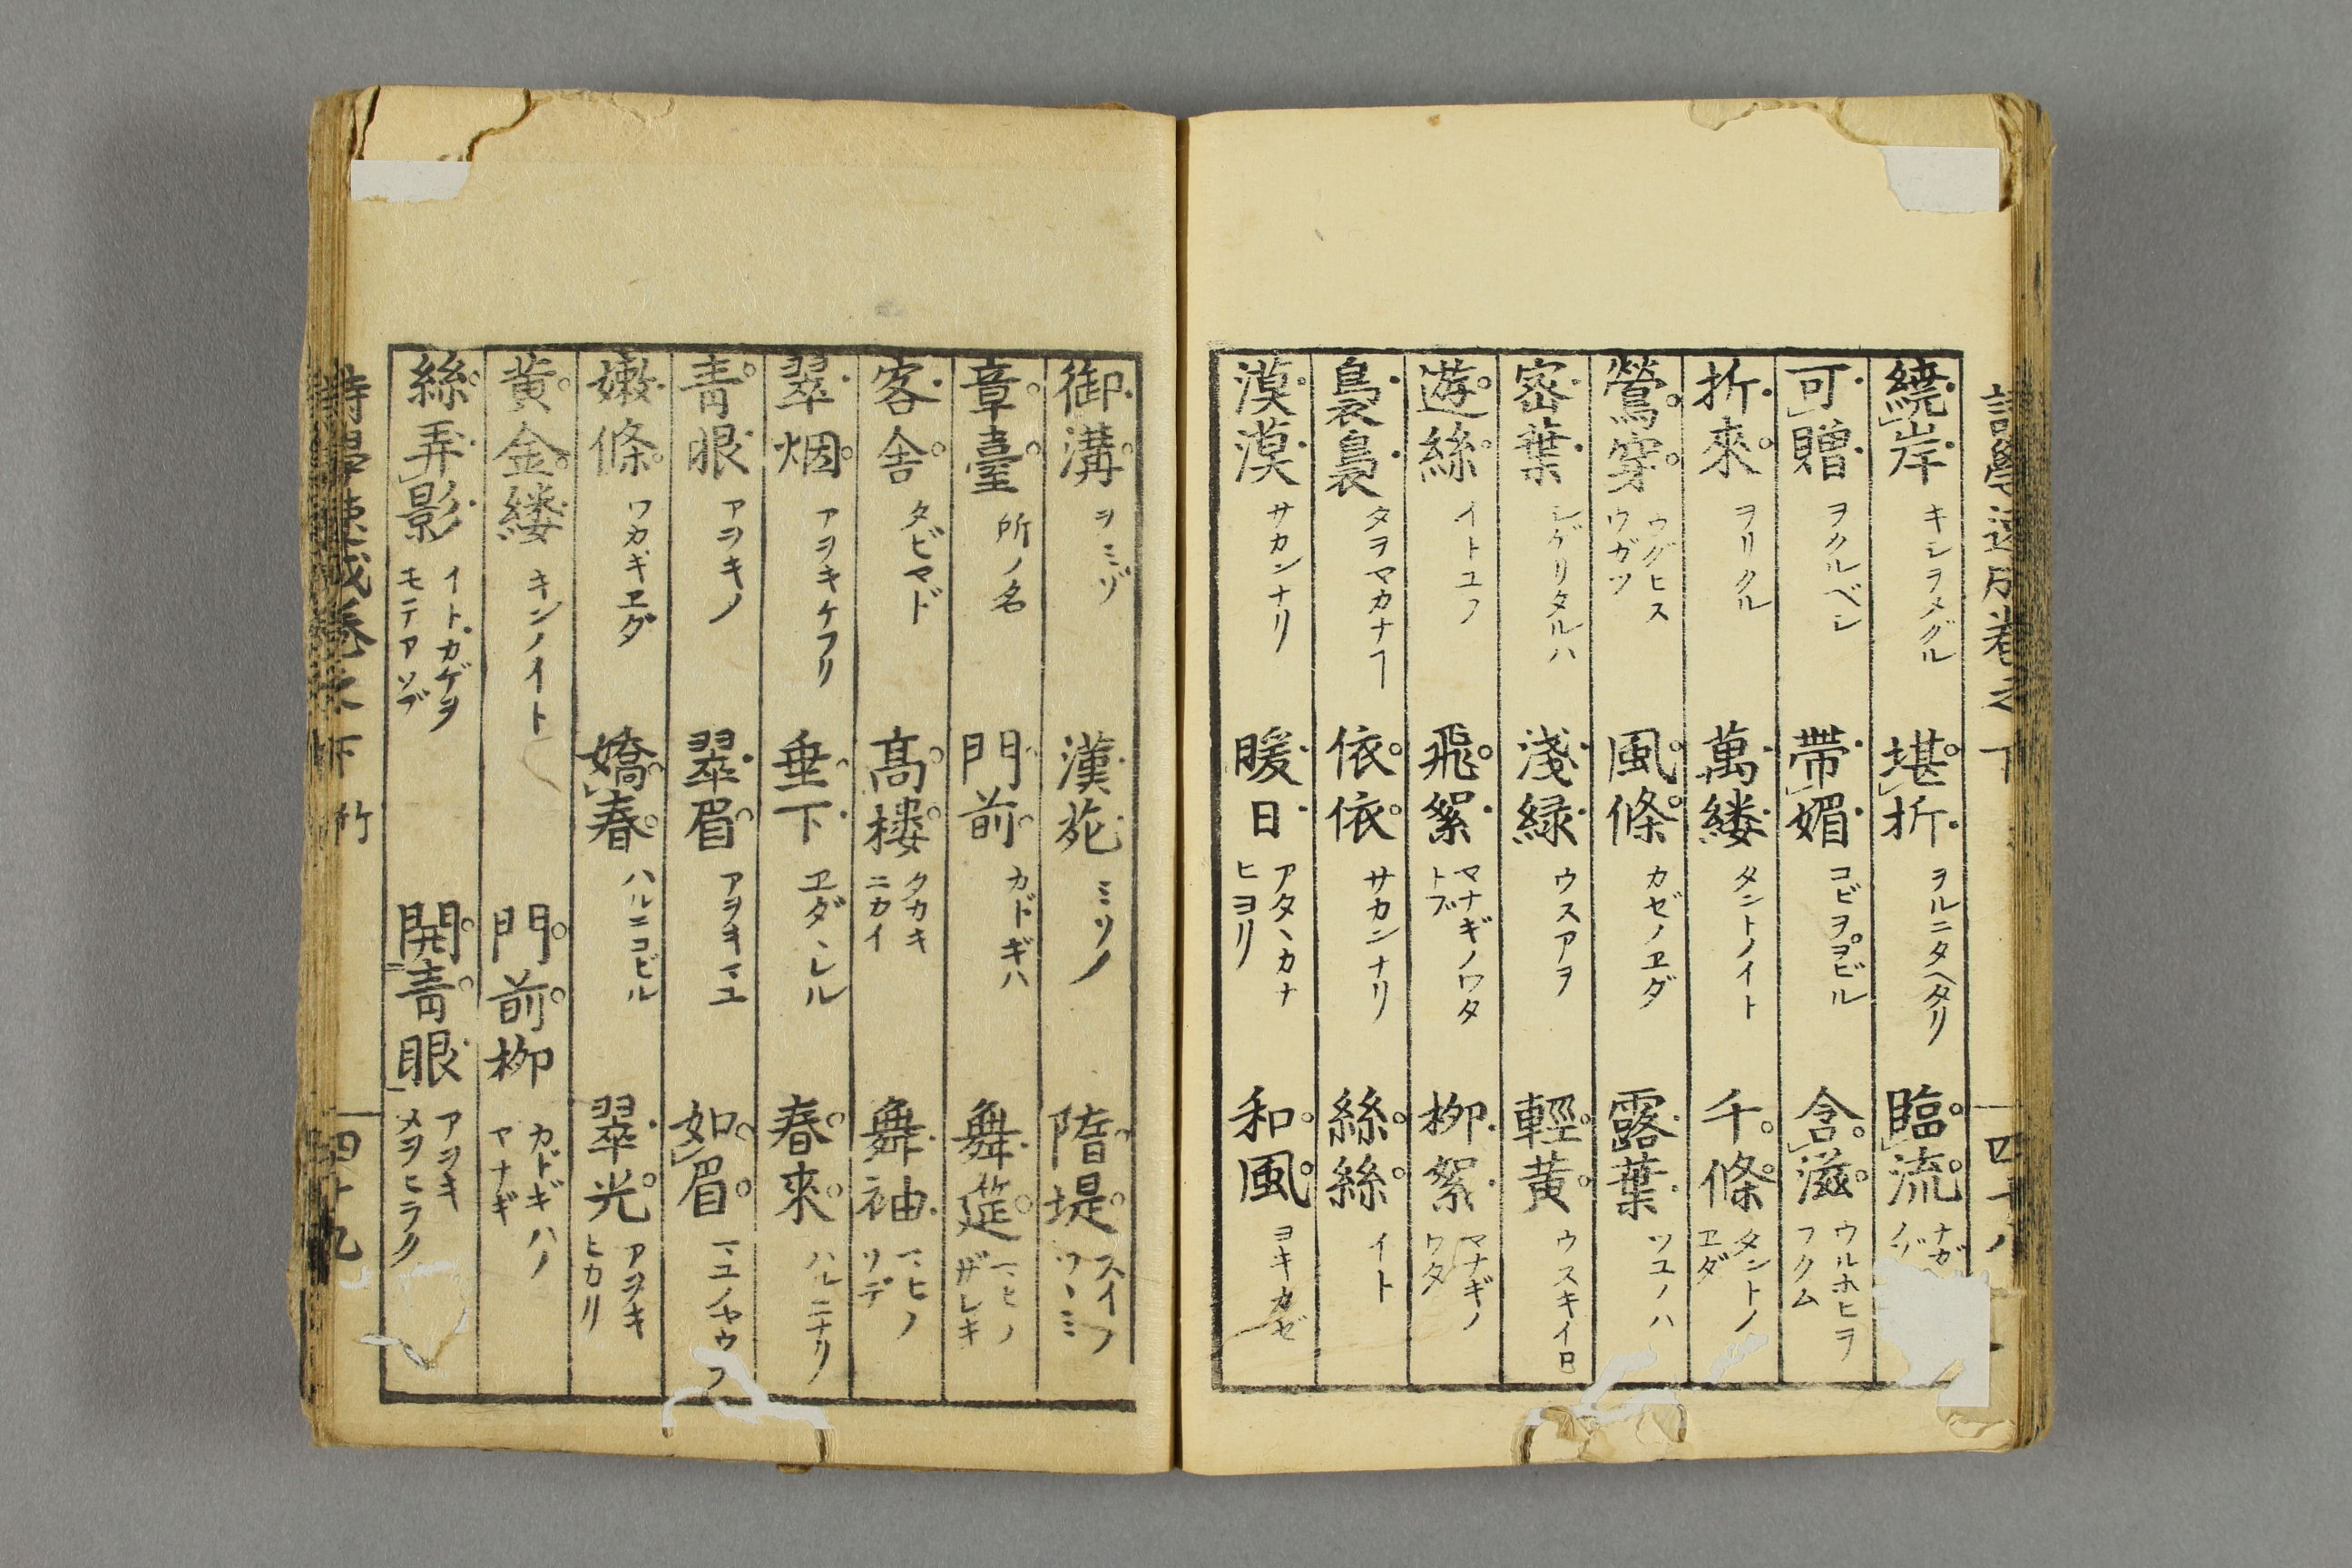 繞岸 キシヲメグル 堪折 ヲルニタヘタリ 臨流 ナガ
可贈 ヲクルベシ 帶媚 コビヲヲビル 含滋 ウルホヒヲフクム
折來 ヲリクル 萬縷 タントノイト 千條 タントノヱダ
鶯穿 ウグヒスウガツ 風條 カゼノヱダ 露葉 ツユノハ
密葉 シゲリタルハ 淺緑 ウスアヲ 輕黄 ウスキイロ
遊絲 イトユフ 飛絮 マナギノワタトブ 柳絮 マナギノワタ
裊裊 タヲマカナヿ 依依 サカンナリ 絲絲 イト
漠漠 サカンナリ 暖日 アタヽカナヒヨリ 和風 ヨキカゼ
御溝 ヲミゾ 漢苑 ミソノ 隋堤 スイノツヽミ
章臺 所ノ名 門前 カドギハ 舞筵 マヒノザレキ
客舎 タビマド 髙樓 タカキニカイ 舞袖 マヒノソデ
翠烟 アヲキケフリ 垂下 ヱダヽレル 春來 ハルニナリ
青眼 アヲキノ 翠眉 アヲキマユ 如眉 マユノヤウフ
嫩條 ワカギヱダ 嬌春 ハルニコビル 翠光 アヲキヒカリ
黄金縷 キンノイト 門前柳 カドギハノマナギ
絲弄影 イトカゲヲモテアソブ 開青眼 アヲキメヲヒラク
卷之下 竹 四十九